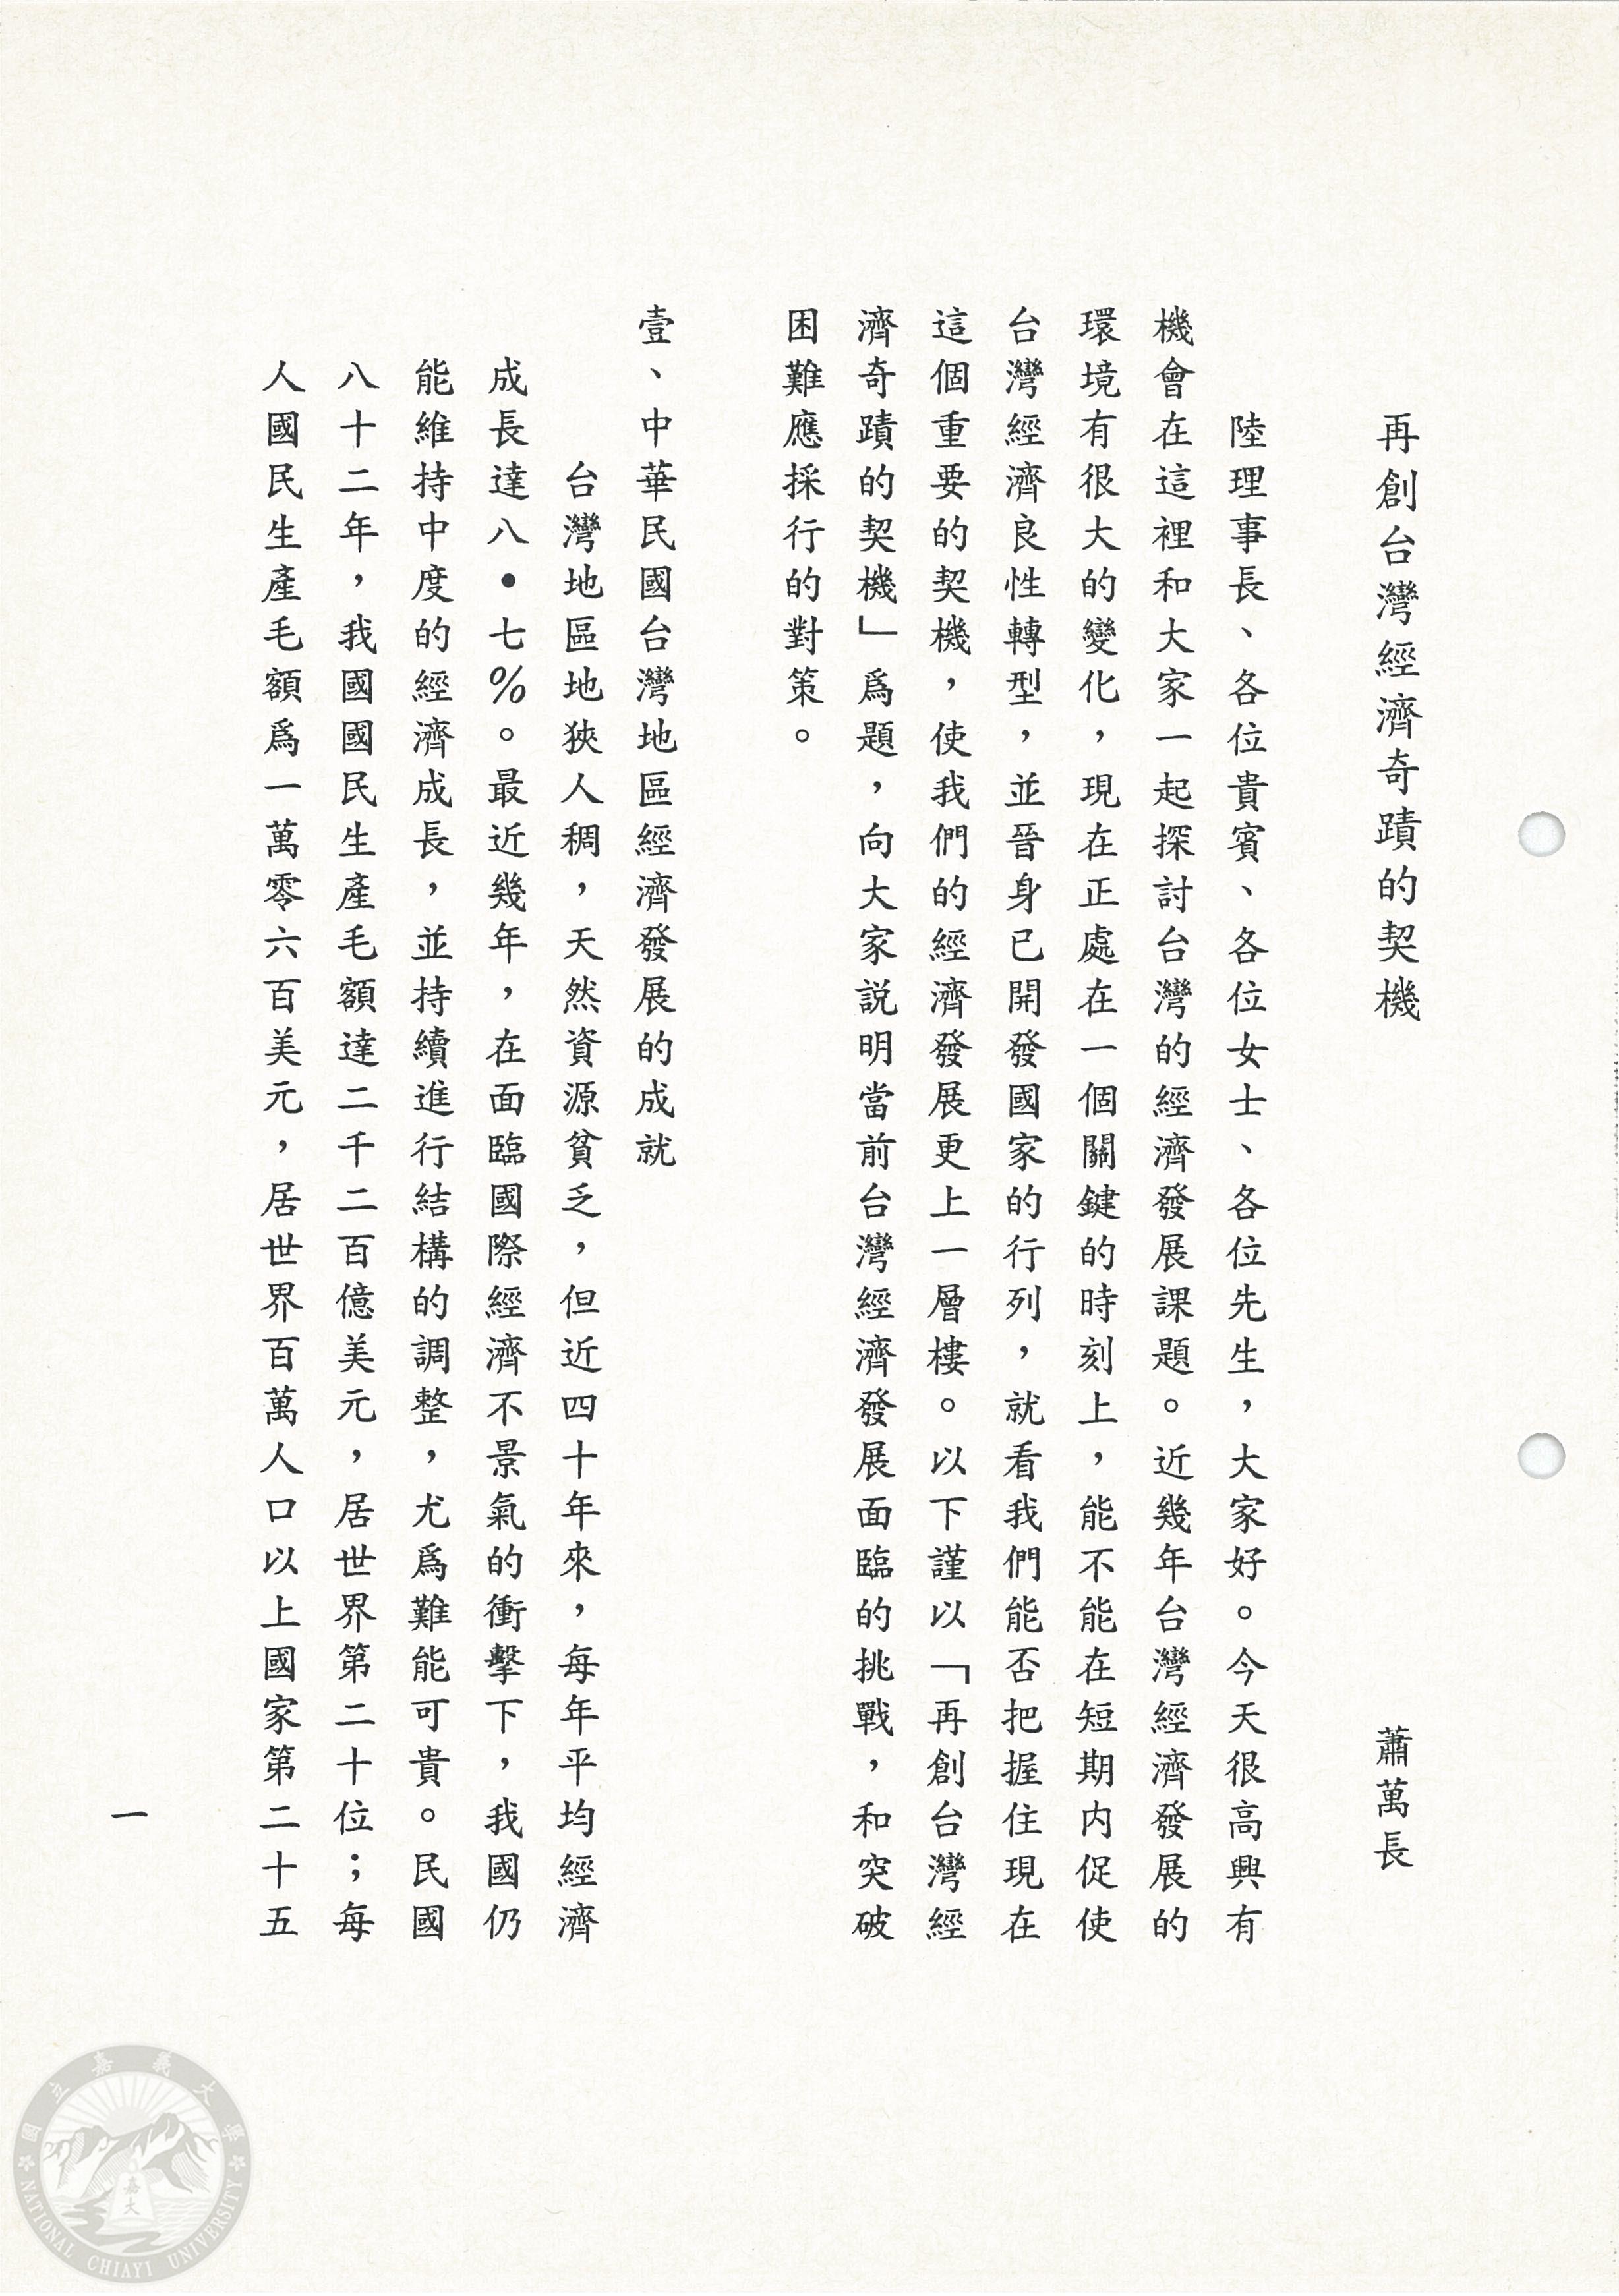 再創台灣經濟奇蹟的契機
蕭萬長
陸理事長、各位貴賓、各位女士、各位先生，大家好。今天很高興有
機會在這裡和大家一起探討台灣的經濟發展課題。近幾年台灣經濟發展的
環境有很大的變化，現在正處在一個關鍵的時刻上，能不能在短期内促使
台灣經濟良性轉型，並晉身已開發國家的行列，就看我們能否把握住現在
這個重要的契機，使我們的經濟發展更上一層樓。以下謹以「再創台灣經
濟奇蹟的契機」爲題，向大家説明當前台灣經濟發展面臨的挑戰，和突破
困難應採行的對策。
壹、中華民國台灣地區經濟發展的成就
台灣地區地狹人稠，天然資源貧乏，但近四十年來，每年平均經濟
成長達八•七%。最近幾年，在面臨國際經濟不景氣的衝擊下，我國仍
能維持中度的經濟成長，並持續進行結構的調整，尤爲難能可貴。民國
八十二年，我國國民生產毛額達二千二百億美元，居世界第二十位；每
人國民生產毛額爲一萬零六百美元，居世界百萬人口以上國家第二十五
一
國立嘉義大學
嘉大
NATIONAL CHIAYI UNIVERSITY